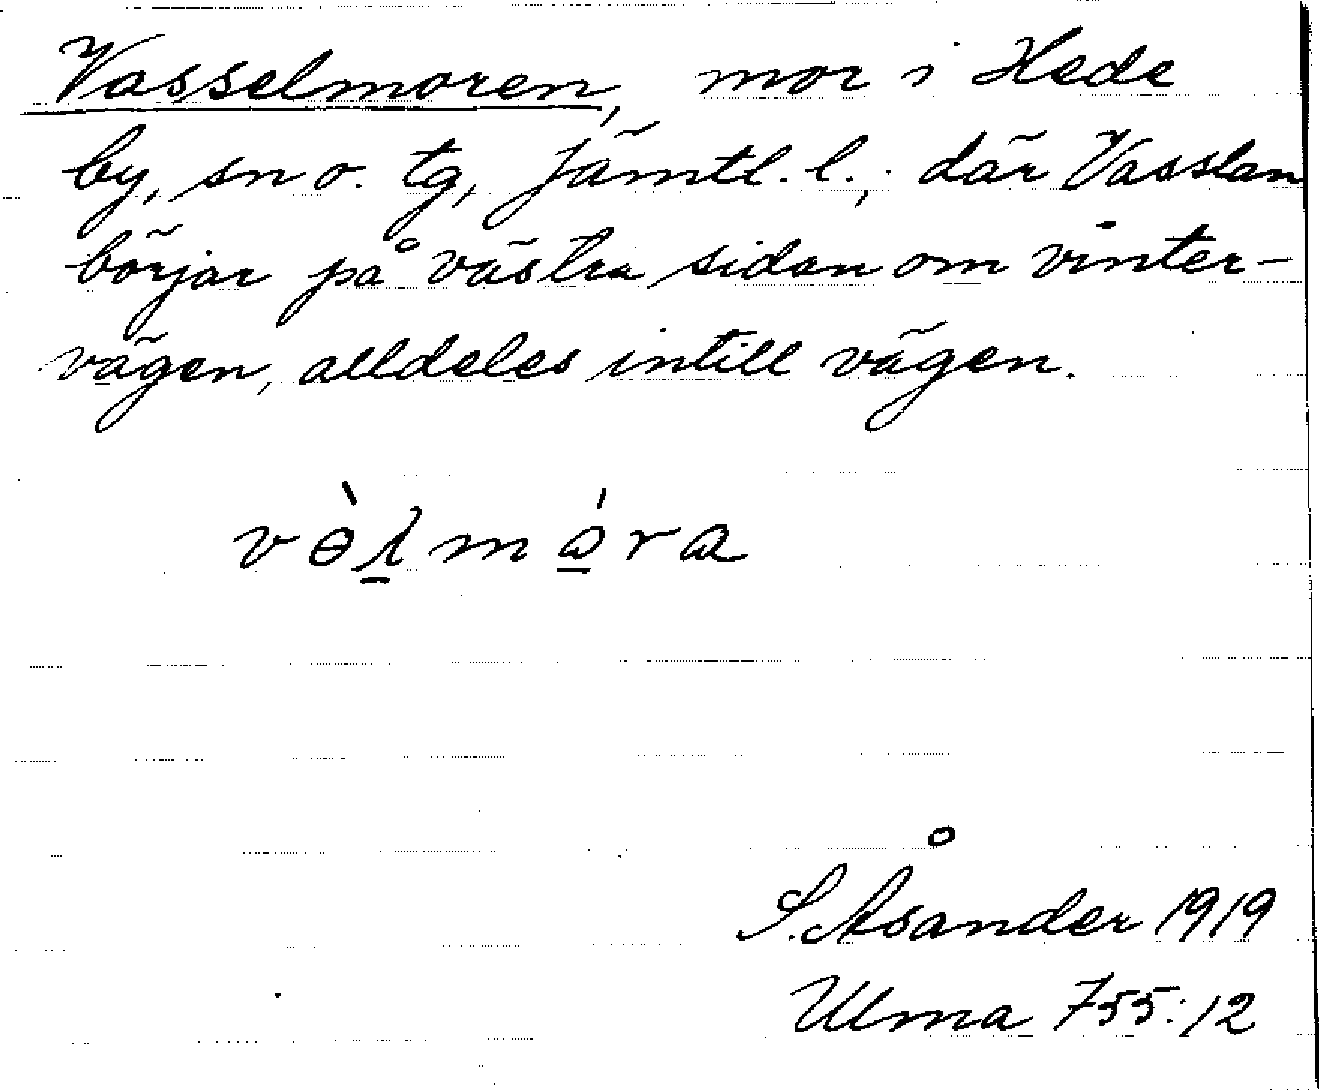 Vasselmoren, mor i Hede
by, sn o. tg, Jämtl. l., där Vasslan
börjar på västra sidan om vinter-
vägen, alldeles intill vägen.
S. Åsander 1919
Ulma 755:12